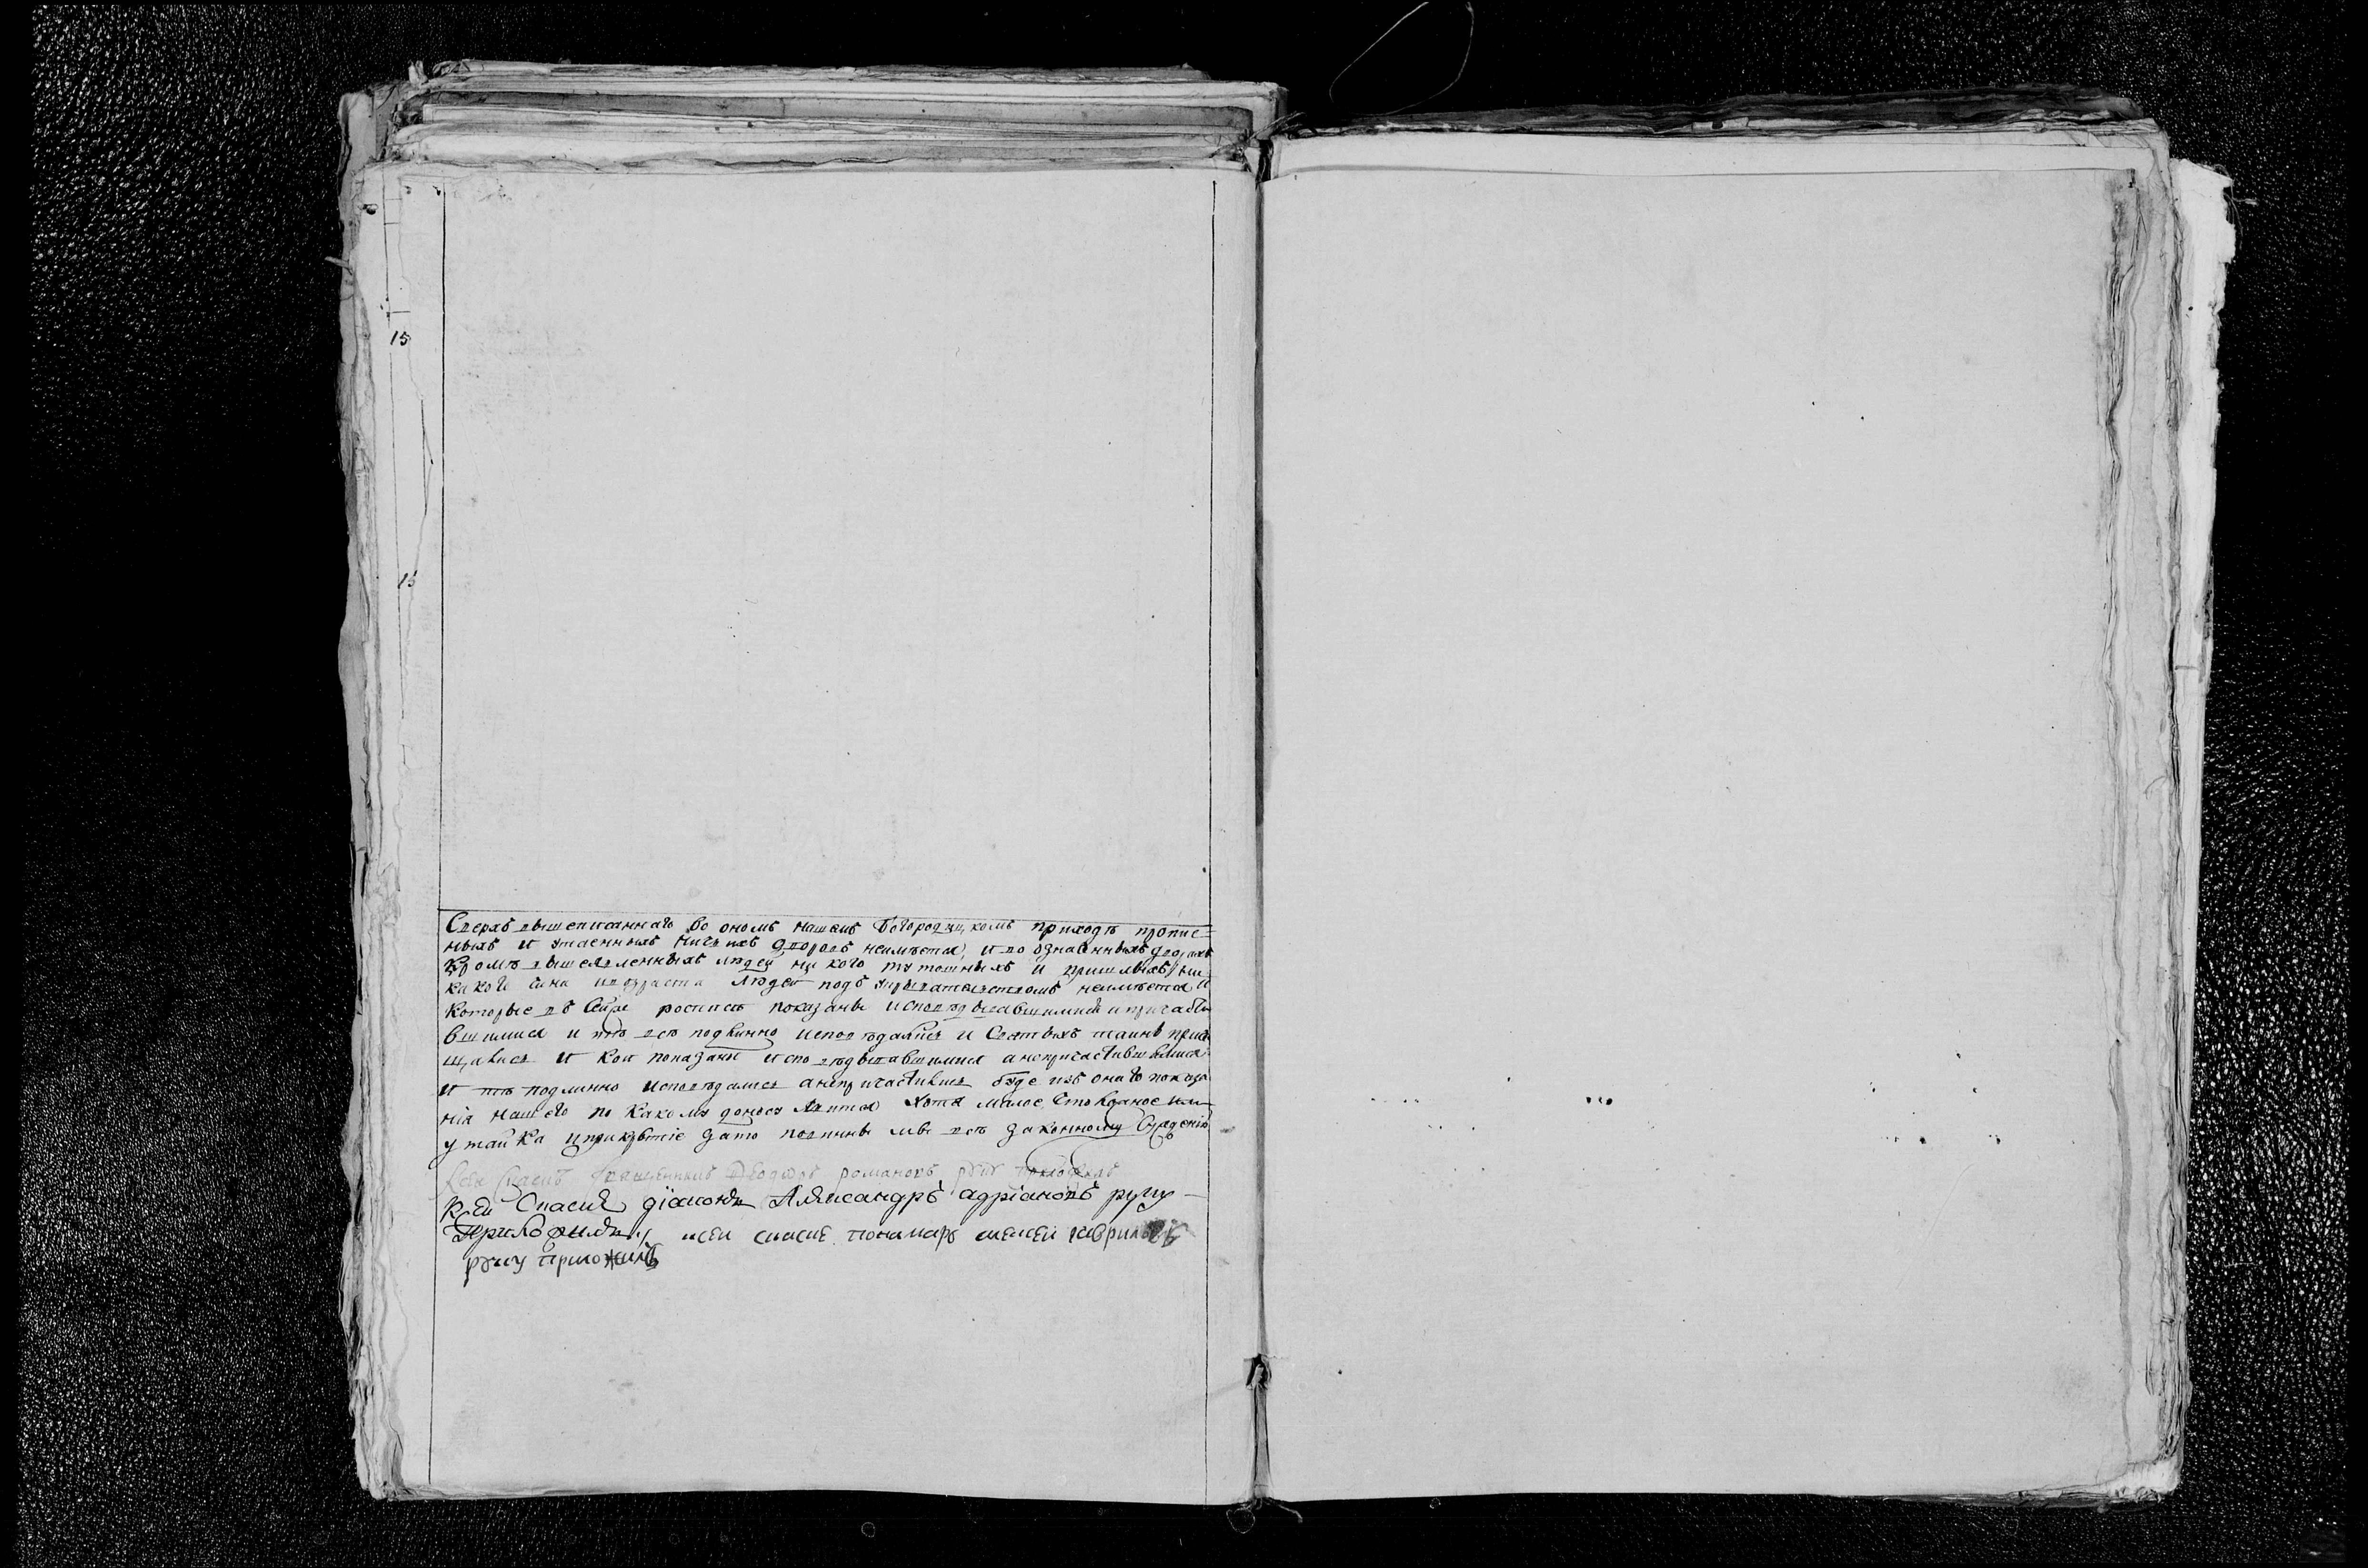 15
15
Сверхъ вышеписаннаго во ономъ нашемъ Богородицкомъ приходѣ пропис=
ныхъ и утаенныхъ ничьихъ дворовъ неимѣется, и во означенныхъ дворахъ
Кромѣ вышеявленныхъ людей ни кого тутошныхъ и пришлыхъ ни
какого чина ивозраста людей подъ укрывательствомъ неимѣется и
Которые въ Сей росписѣ показаны исповѣдывавшимися и причасти
вшимися и тѣ всѣ подлинно исповѣдались и Святыхъ таинъ прича
щались и кои показаны исповѣдывавшимися анепричастившимися
и тѣ подлинно исповѣдались анепричастились буде изъ онаго показа
нія нашего по какому доносу явится хотя малое что ложное или
утайка иприкрытіе зато повинны мы всѣ законному Сужденію
Ксей священникъ романовъ руку
Ксей Сказкѣ діаконъ Александръ адріановъ руку
Приложилъ ксей сказке понамарь гаврилов
руку приложилъ